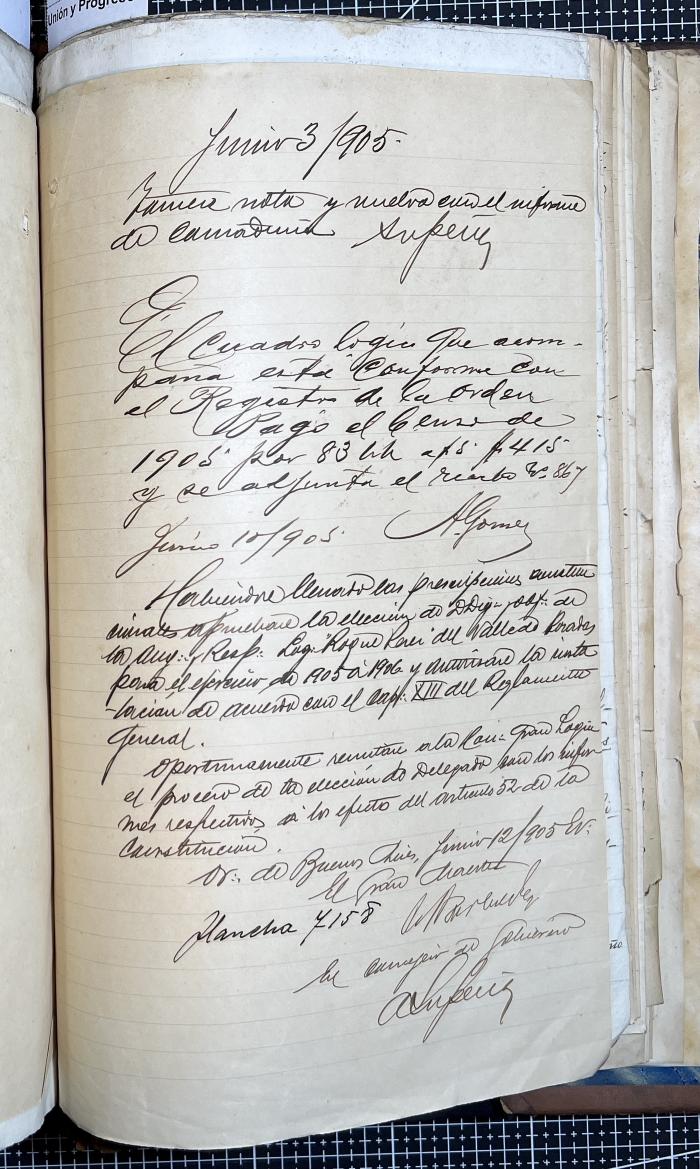 Unión y Progreso
Junio 3/905.
Tómese nota y vuelva con el informe
de Contaduría
El Cuadro Lógico que acom-
paña está Conforme con
el Registro de la Orden
Pagó el Censo de
1905 por 83 hh a f 5. f 415
y se adjunta el recibo Nº 867
A. Gomez
Junio 10/905.
Habiéndose llenado las prescripciones constitu
cionales apruébase la elección de DDig: y Off: de
la Aug:. Resp:. Log:. "Roque Perez" del Valle de Posadas
para el ejercicio de 1905 á 1906 y autorízase la insta
-lación de acuerdo con el Cap: XIII del Reglamento
General.
Oportunamente remítase á la Gran Logia
el proceso de la elección de Delegado con los infor-
mes respectivos á los efectos del artículo 52 de la
Constitución.
Or:. de Buenos Aires, Junio 12/905 Ev:.
El Gran Maestre
Plancha 7158
El consejero de Gobierno